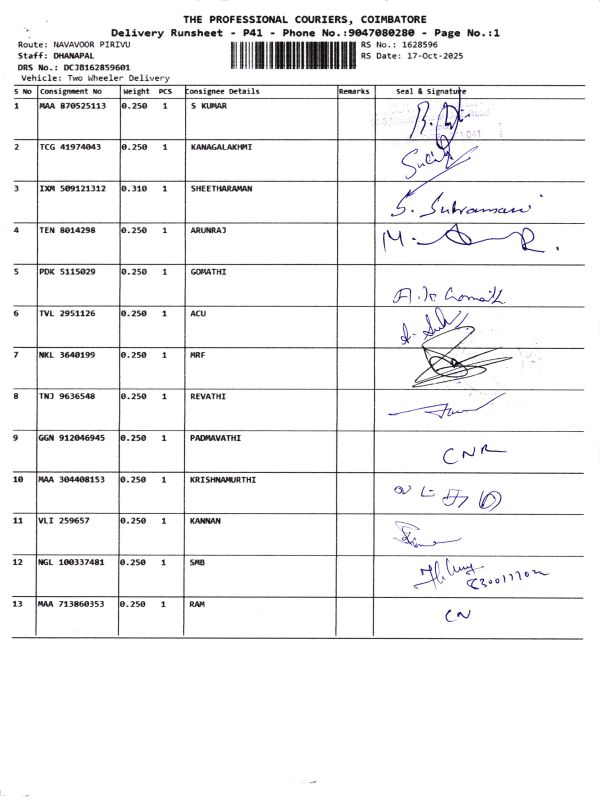 THE PROFESSIONAL COURIERS, COIMBATORE
Delivery Runsheet - P41 - Phone No.:9047080280 - Page No.:1
Route: NAVAVOOR PIRIVU RS No.: 1628596
Staff: DHANAPAL RS Date: 17-Oct-2025
DRS No.: DCJB162859601
Vehicle: Two Wheeler Delivery
S No Consignment No Weight PCS Consignee Details Remarks Seal & Signature
1 MAA 870525113 0.250 1 S KUMAR
2 TCG 41974043 0.250 1 KANAGALAKHMI
3 IXM 509121312 0.310 1 SHEETHARAMAN S. Subramani
4 TEN 8014298 0.250 1 ARUNRAJ
5 PDK 5115029 0.250 1 GOMATHI
6 TVL 2951126 0.250 1 ACU
7 NKL 3640199 0.250 1 MRF
8 TNJ 9636548 0.250 1 REVATHI
9 GGN 912046945 0.250 1 PADMAVATHI CNR
10 MAA 304408153 0.250 1 KRISHNAMURTHI
11 VLI 259657 0.250 1 KANNAN
12 NGL 100337481 0.250 1 SMB
13 MAA 713860353 0.250 1 RAM CN